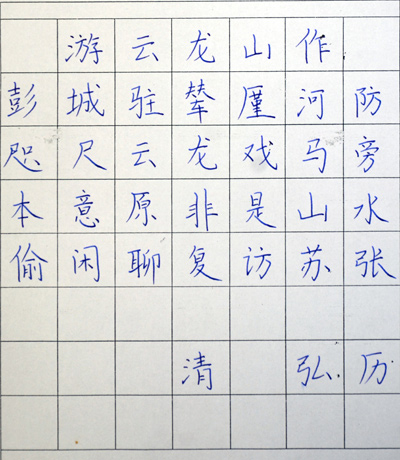 游云龙山作
彭城驻辇廑河防
咫尺云龙戏马旁
本意原非是山水
偷闲聊复访苏张
清 弘历